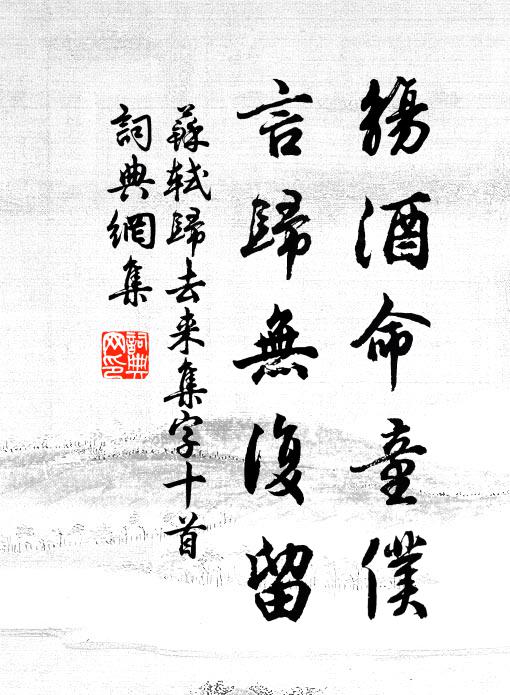 觴酒命童僕
言歸無復留
蘇軾歸去来集字十首
詞典網集
詞典網印